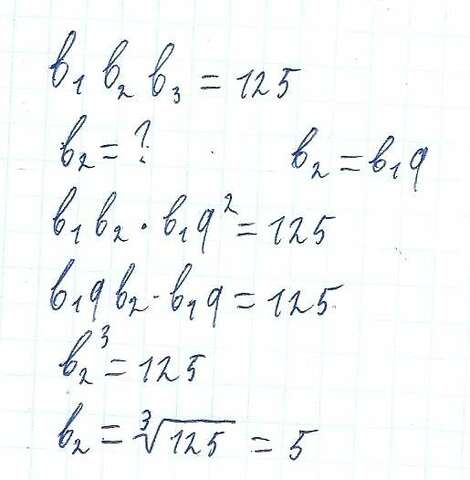 b₁ b₂ b₃ = 125
b₂ = ?
b₂ = b₁q
b₁ b₂ · b₁q² = 125
b₁q b₂ · b₁q = 125
b₂³ = 125
b₂ = ∛125 = 5